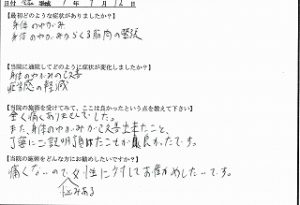 日付 平成 年 月 日
【最初どのような症状がありましたか？】
身体のゆがみ
身体のゆがみからくる筋肉の
【当院に通院してどのように症状が変化しましたか？】
身体のゆがみの改善
の軽減
【当院の施術を受けてみて、ここは良かったという点を教えて下さい】
全く痛くありませんでした。
また、身体のゆがみが改善出来たこと、
丁寧にご説明頂けたことが良かったです。
【当院の施術をどんな方にお勧めしたいですか？】
痛くないので女性に対してお勧めしたいです。
悩みある